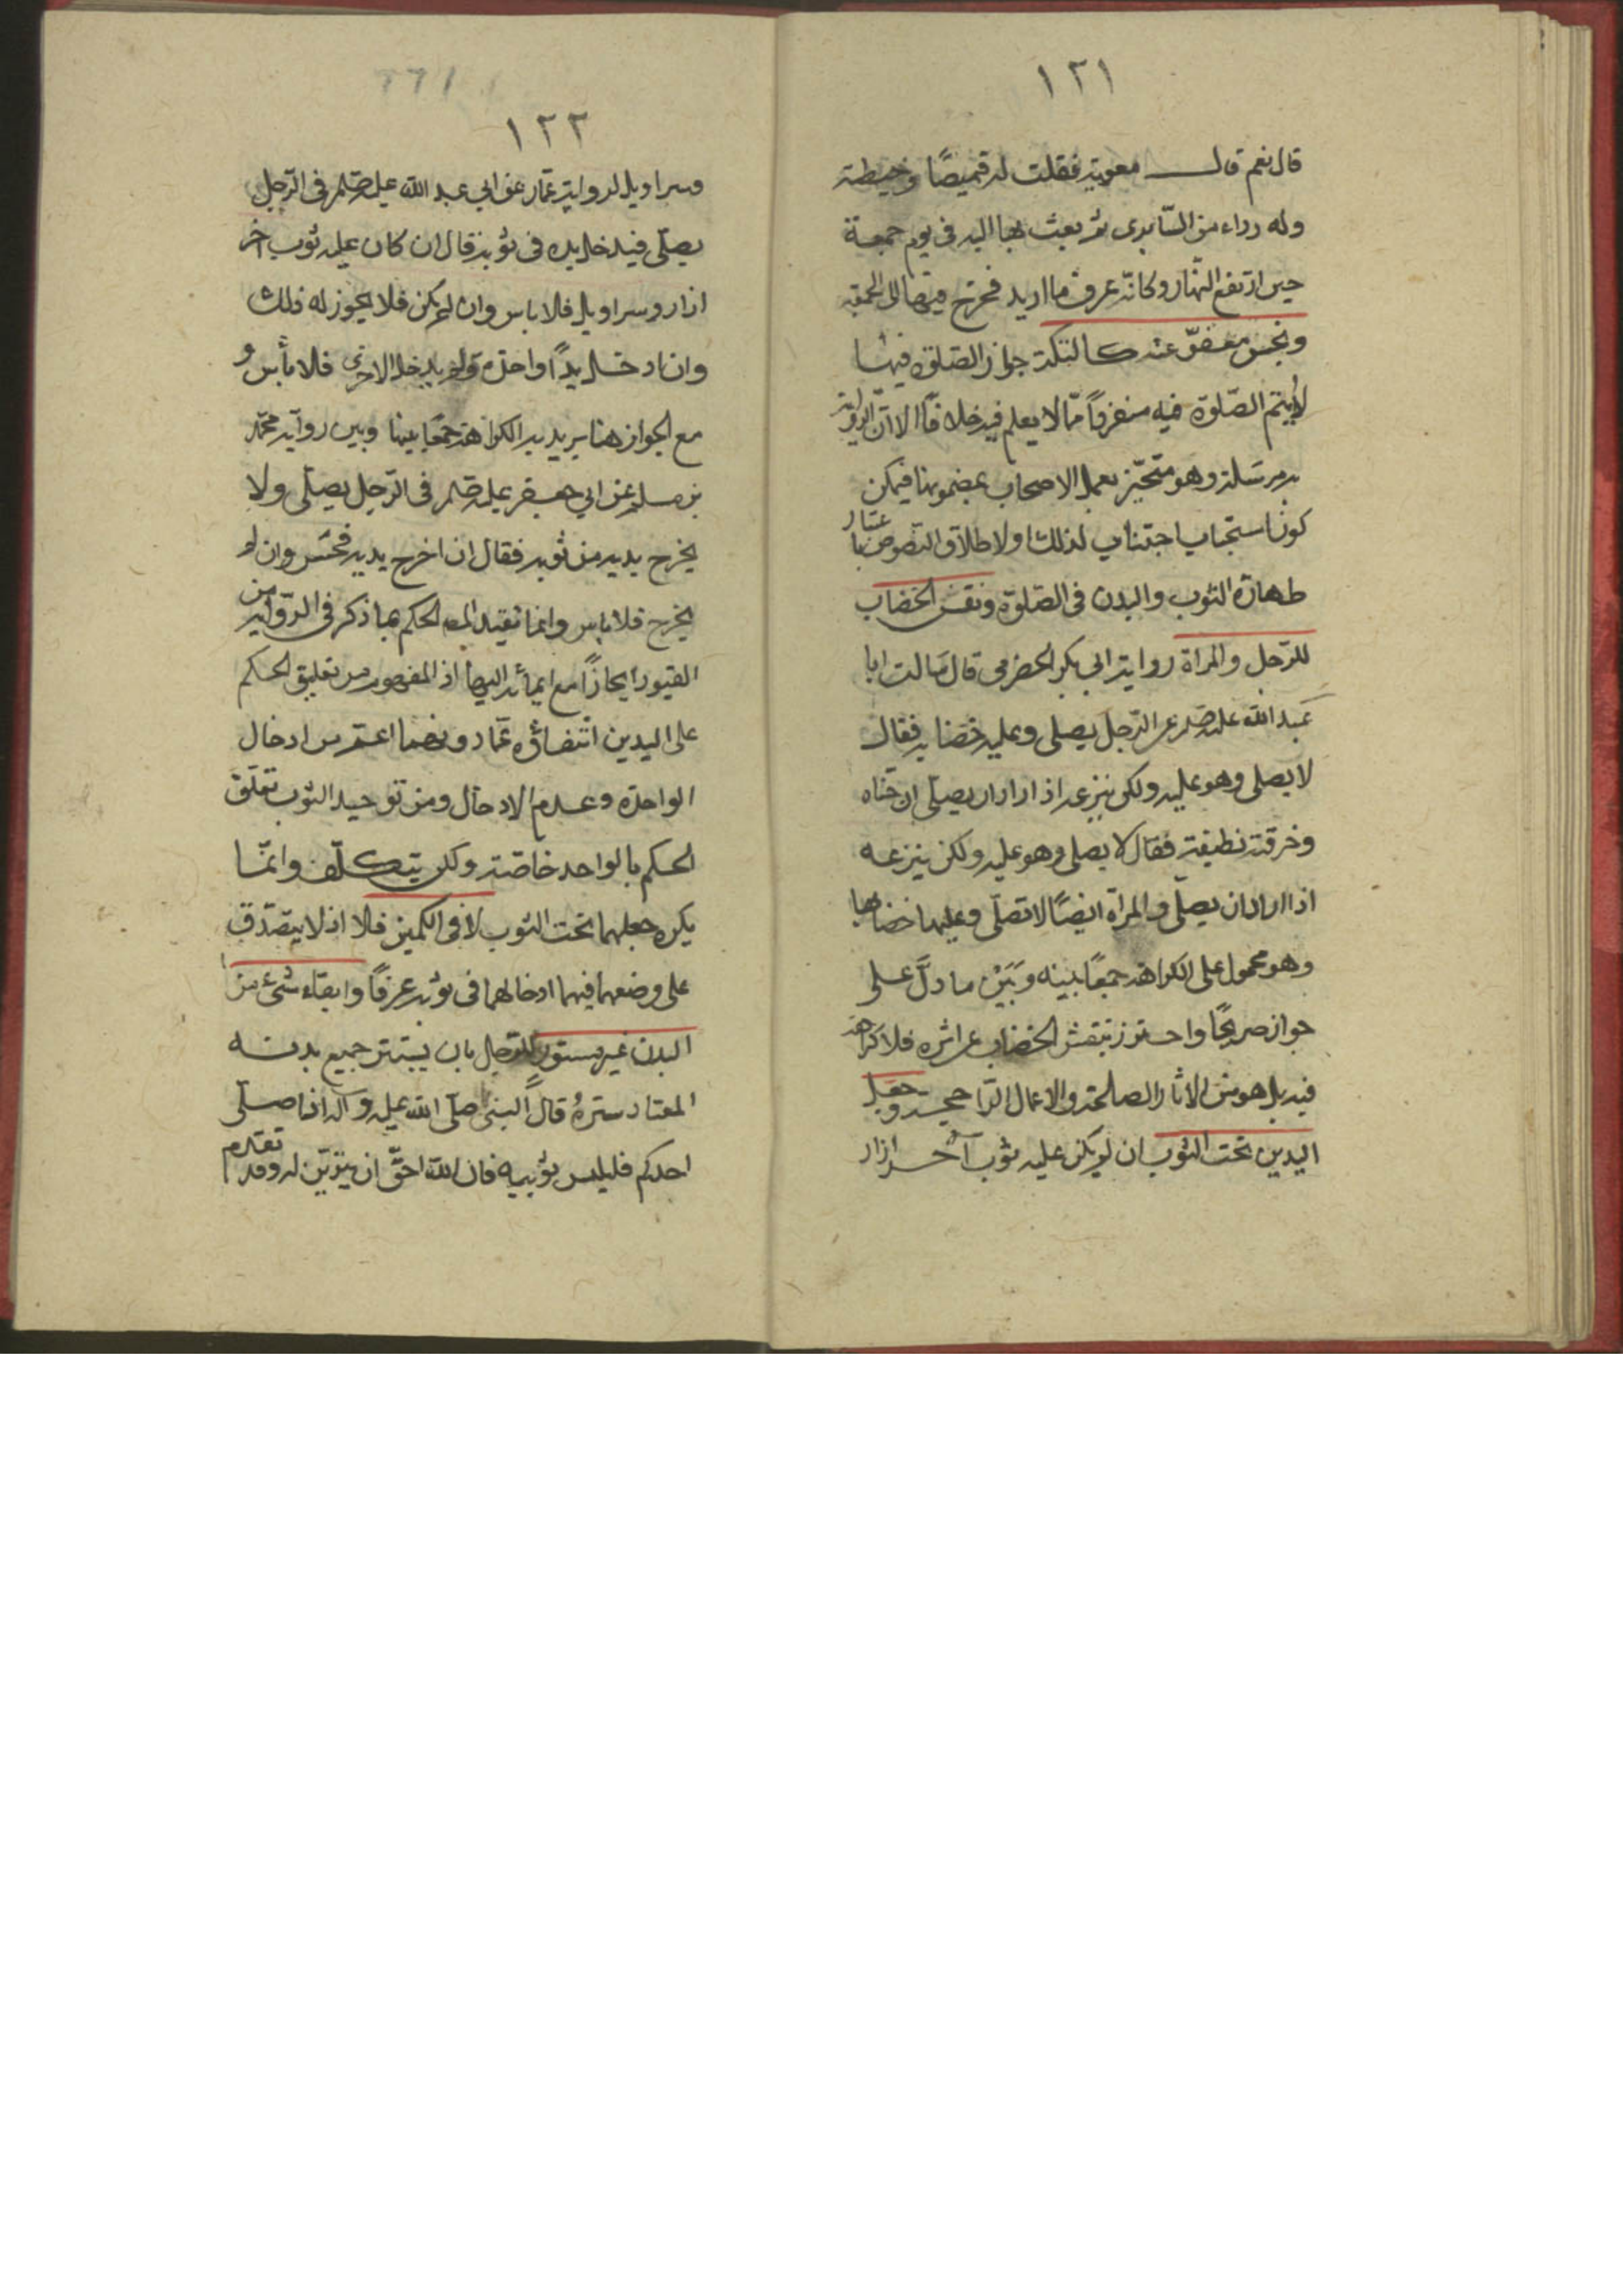 ١٢١
قال نعم قال معوية فقطعت له قميصًا وخيطته
وله رداء من السابري ثم بعثت بها اليه في يوم جمعة
حين ارتفع النهار وكانّه عرف ما اريد فخرج فيها الى الجمعة
ونجس معفوّ عنه كالتكة جواز الصلوة فيها
لا يتم الصّلوة فيه منفردًا ممّا لا يعلم فيه خلافًا الا انّ الرواية
به مرسلة وهو متحيّز بعمل الاصحاب بمضمونها فيمكن
كون استحباب اجتنابه لذلك اولاطلاق النصوص باعتبار
طهارة الثوب والبدن في الصّلوة ونقش الخضاب
للرّجل والمراة رواية ابي بكر الحضرمي قال سالت ابا
عبد الله عليه عن الرّجل يصلى وعليه خضابه فقال
لا يصلى وهو عليه ولكن ينزعه اذا اراد ان يصلّى ان حنّاه
وخرقته نظيفة فقال لا يصلى وهو عليه ولكن ينزعه
اذا اراد ان يصلّى والمراة ايضًا لا تصلّى وعليها خضابها
وهو محمول على الكراهة جمعًا بينه وبَيْن ما دلَّ على
جوازه صريحًا واحترز بنقش الخضاب عن اثره فلا كراهة
فيه بل هو من الاثار الصالحة والاعمال الرّاجحة وجعل
اليدين تحت الثوب ان لم يكن عليه ثوب آخر ازار
١٢٢
وسراويل لرواية عمّار عن ابي عبد الله عليه في الرّجل
يصلّى فيدخل يده في ثوبه قال ان كان عليه ثوب اخر
ازار وسراويل فلا باس وان لم يكن فلا يجوز له ذلك
وان ادخل يدًا واحدة ولم يدخل الاخرى فلا بأس و
مع الجواز هنا يريد به الكراهة جمعًا بينها وبين رواية محمّد
بن مسلم عن ابي جعفر عليه في الرّجل يصلّى ولا
يخرج يديه من ثوبه فقال ان اخرج يديه فحسن وان لم
يخرج فلا باس وانما تقيد الحكم بما ذكر في الرّواية من
القيود ايجازًا مع ايمائه اليها اذ المفهوم من تعليق الحكم
على اليدين انتفاؤه عما دونهما اعم من ادخال
الواحدة وعدم الادخال ومن توحيد الثوب تعلق
الحكم بالواحد خاصّة ولكن يتكلّف وانّما
يكره جعلهما تحت الثوب لا في الكمين فلا اذ لا يتصدق
على وضعهما فيهما ادخالهما في ثوبه عرفًا وابقاء شئ من
البدن غير مستور للرّجل بان يستتر جميع بدنه
المعتاد ستره قال النبيّ صلّى الله عليه وآله اذا صلّى
احدكم فليلبس ثوبيه فان الله احقّ ان يتزيّن له وقد تقدم